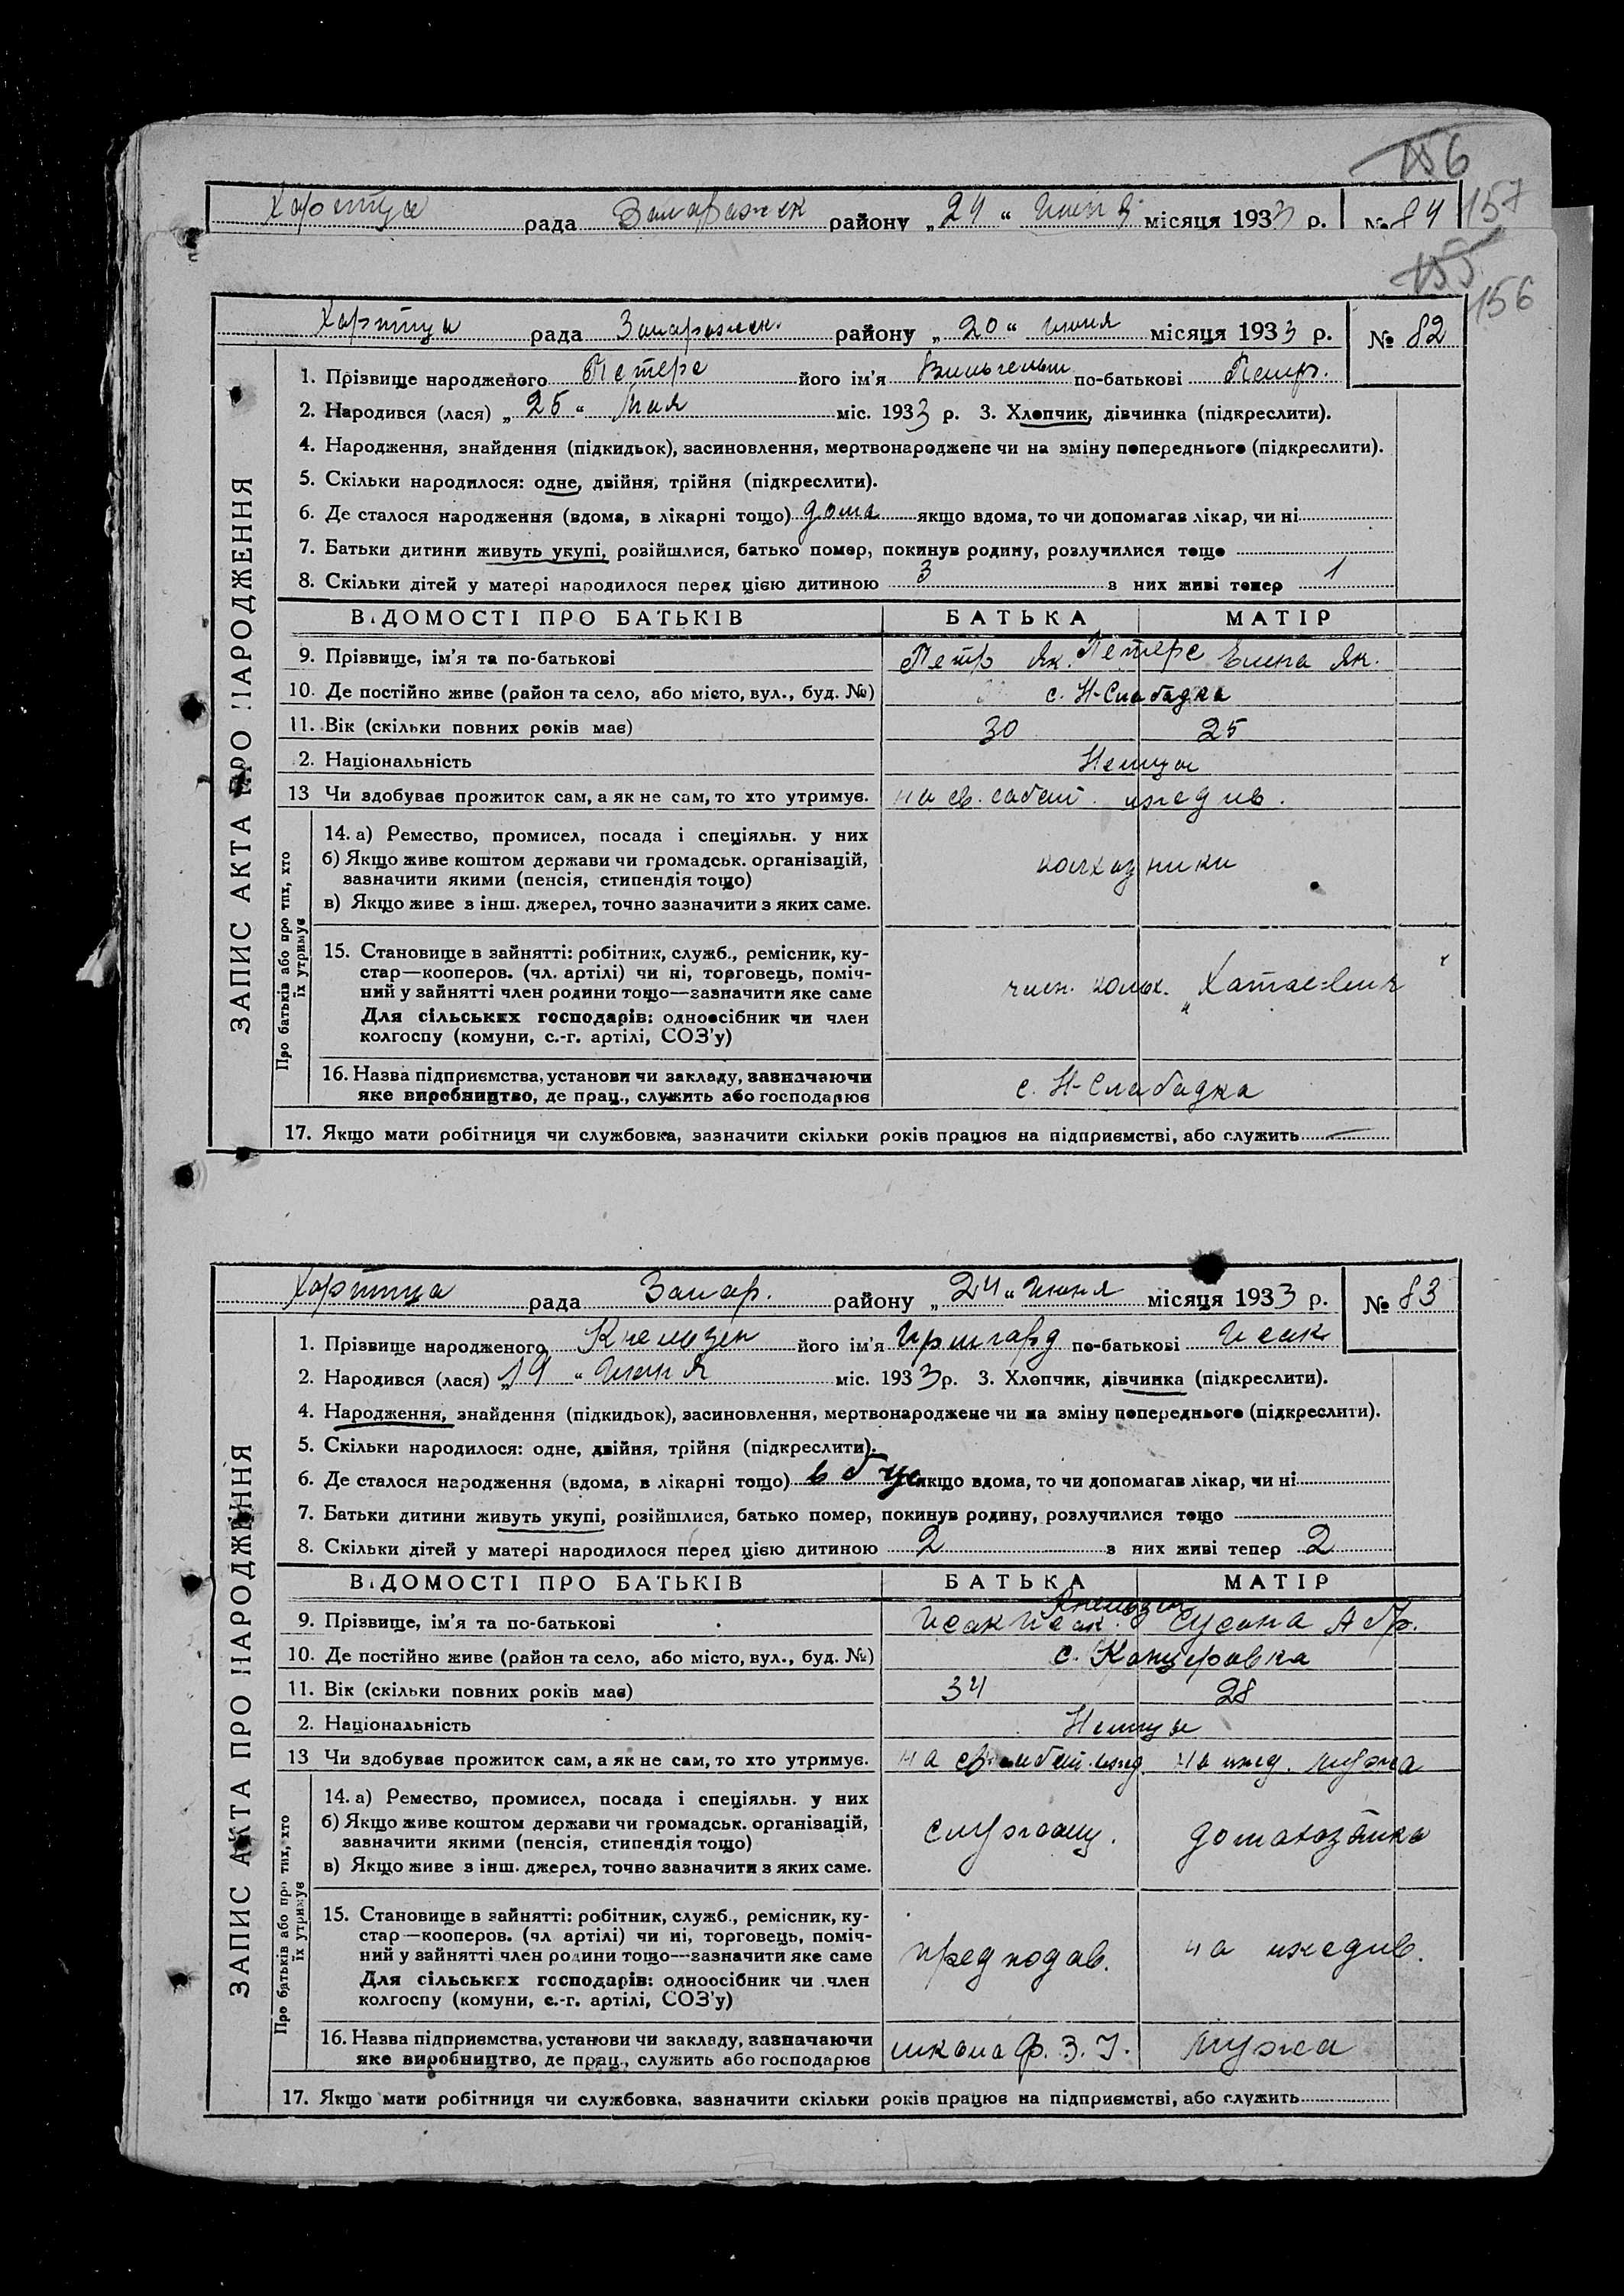 156
157
Хортица рада Запорожск району „24“ июня місяця 1933 р. № 84
155
156
Хортица рада Запорожск. району „20“ июня місяця 1933 р. № 82
ЗАПИС АКТА ПРО НАРОДЖЕННЯ
1. Прізвище народженого Петерс його ім'я Вильгельм по-батькові Петр.
2. Народився (лася) „25“ Мая міс. 1933 р. 3. Хлопчик, дівчинка (підкреслити).
4. Народження, знайдення (підкидьок), засиновлення, мертвонароджене чи на зміну попереднього (підкреслити).
5. Скільки народилося: одне, двійня, трійня (підкреслити).
6. Де сталося народження (вдома, в лікарні тощо) дома якщо вдома, то чи допомагав лікар, чи ні
7. Батьки дитини живуть укупі, розійшлися, батько помер, покинув родину, розлучилися тощо
8. Скільки дітей у матері народилося перед цією дитиною 3 з них живі тепер 1
ВІДОМОСТІ ПРО БАТЬКІВ БАТЬКА МАТІР
9. Прізвище, ім'я та по-батькові Петр Як. Петерс Елена Як.
10. Де постійно живе (район та село, або місто, вул., буд. №) с. Н-Слабадка
11. Вік (скільки повних років має) 30 25
2. Національність Немцы
13 Чи здобуває прожиток сам, а як не сам, то хто утримує. на св. собст. иждив.
Про батьків або про тих, хто їх утримує
14. а) Ремество, промисел, посада і спеціяльн. у них
б) Якщо живе коштом держави чи громадськ. організацій,
зазначити якими (пенсія, стипендія тощо) колхозники
в) Якщо живе з інш. джерел, точно зазначити з яких саме.
15. Становище в зайнятті: робітник, служб., ремісник, ку-
стар—кооперов. (чл. артілі) чи ні, торговець, поміч-
ний у зайнятті член родини тощо—зазначити яке саме член. колх.
Для сільських господарів: одноосібник чи член
колгоспу (комуни, с.-г. артілі, СОЗ'у)
16. Назва підприємства, установи чи закладу, зазначаючи
яке виробництво, де прац., служить або господарює с. Н-Слабадка
17. Якщо мати робітниця чи службовка, зазначити скільки років працює на підприємстві, або служить —
Хортица рада Запор. району „24“ июня місяця 1933 р. № 83
ЗАПИС АКТА ПРО НАРОДЖЕННЯ
1. Прізвище народженого Кнельзен його ім'я Ирмгард по-батькові Исак
2. Народився (лася) „19“ Июня міс. 1933 р. 3. Хлопчик, дівчинка (підкреслити).
4. Народження, знайдення (підкидьок), засиновлення, мертвонароджене чи на зміну попереднього (підкреслити).
5. Скільки народилося: одне, двійня, трійня (підкреслити).
6. Де сталося народження (вдома, в лікарні тощо) в б-це якщо вдома, то чи допомагав лікар, чи ні
7. Батьки дитини живуть укупі, розійшлися, батько помер, покинув родину, розлучилися тощо
8. Скільки дітей у матері народилося перед цією дитиною 2 з них живі тепер 2
ВІДОМОСТІ ПРО БАТЬКІВ БАТЬКА МАТІР
9. Прізвище, ім'я та по-батькові Исак Исак. Кнельзен Сусана Абр.
10. Де постійно живе (район та село, або місто, вул., буд. №) с. Канцеровка
11. Вік (скільки повних років має) 34 28
2. Національність Немцы
13 Чи здобуває прожиток сам, а як не сам, то хто утримує. на собст. ижд. на ижд. мужа
Про батьків або про тих, хто їх утримує
14. а) Ремество, промисел, посада і спеціяльн. у них
б) Якщо живе коштом держави чи громадськ. організацій, служащ. домохозяйка
зазначити якими (пенсія, стипендія тощо)
в) Якщо живе з інш. джерел, точно зазначити з яких саме.
15. Становище в зайнятті: робітник, служб., ремісник, ку-
стар—кооперов. (чл артілі) чи ні, торговець, поміч-
ний у зайнятті член родини тощо—зазначити яке саме предподав. на иждив.
Для сільських господарів: одноосібник чи член
колгоспу (комуни, с.-г. артілі, СОЗ'у)
16. Назва підприємства, установи чи закладу, зазначаючи
яке виробництво, де прац., служить або господарює школа Ф. З. У. мужа
17. Якщо мати робітниця чи службовка, зазначити скільки років працює на підприємстві, або служить